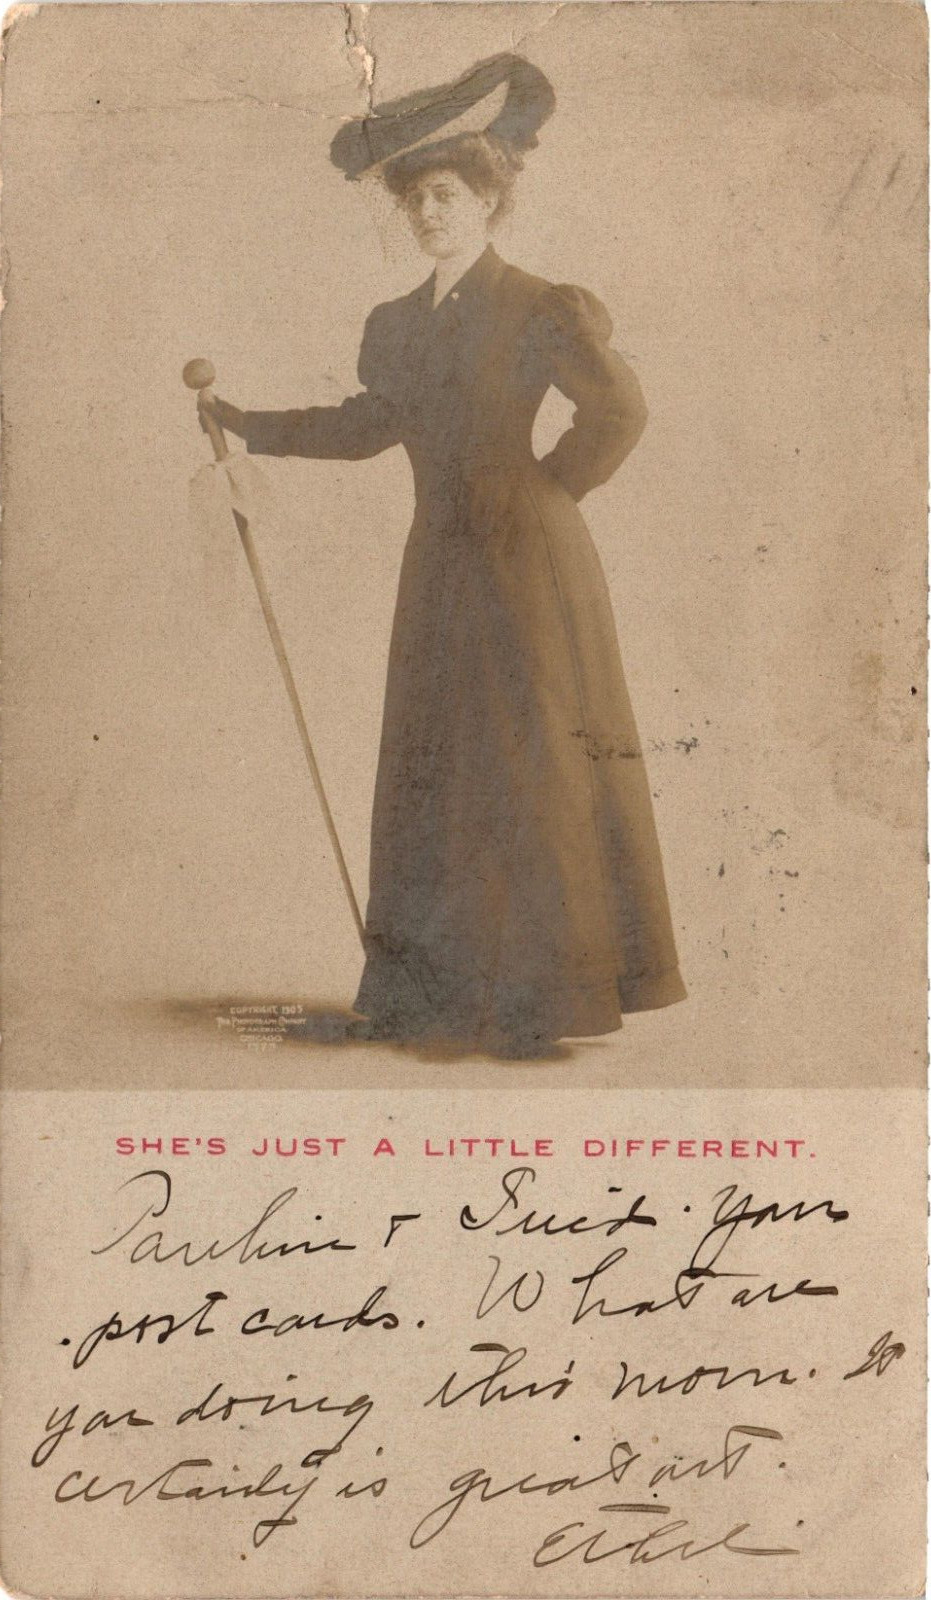 COPYRIGHT, 1905
THE PHOTOGRAPH COMPANY
OF AMERICA
CHICAGO
SHE'S JUST A LITTLE DIFFERENT.
Pauline + your
post cards. What are
you doing this morn. It
certainly is great out.
Ethel